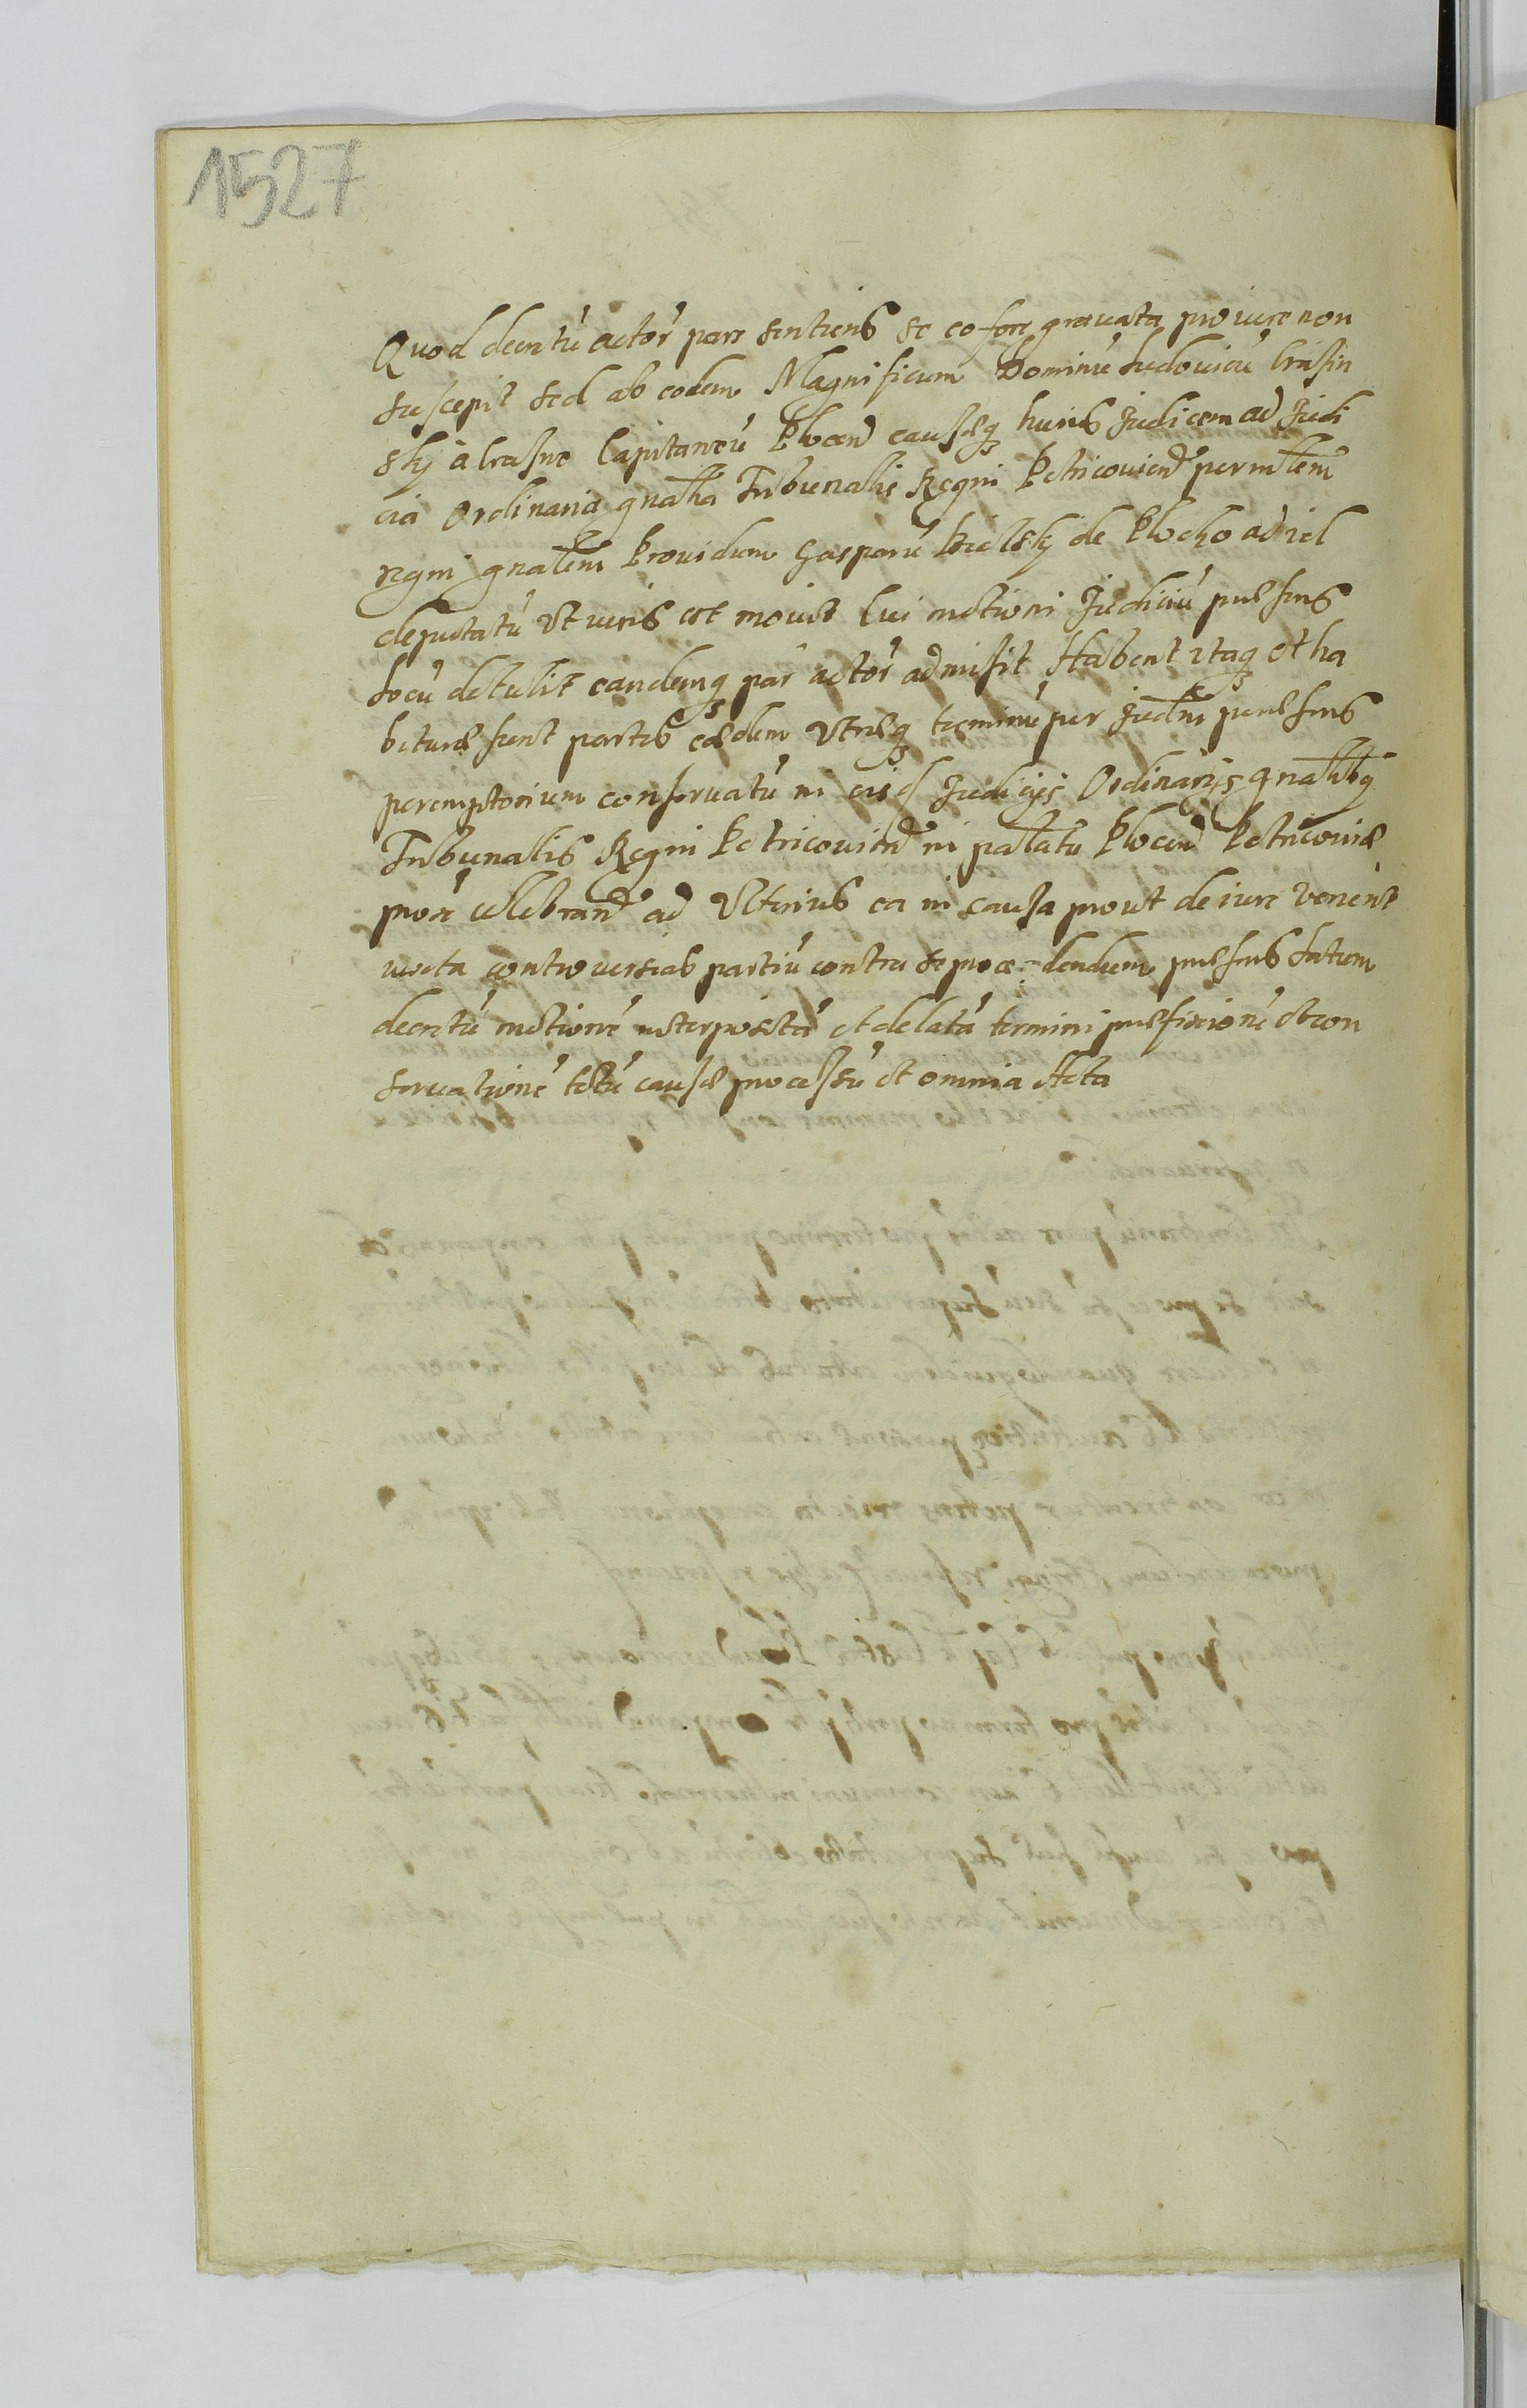 1527
Quod decretū actor̄ pars sentiens se eo fore gravata pro iure non
suscepit sed ab eodem Magnificum Dominū Ludovicū Crasin
skj à Crasne Capitaneū Plocen̄ causæq3 huius Judicem ad Judi
cia Ordinaria gnālia Tribunalis Regni Petricovien̄ per mīlem
regni gnālem Providum Gasparū Bielskj de Plocko ad id
deputatū Vt iuris est movit Cui motioni Judiciū præsens
locū detulit eandemq3 par̄ actor̄ admisit Habent itaq3 et ha
bituræ sunt partes eædem Vtræq3 terminū per Judm̄ præsens
peremptorium conservatū in eisd Judicijs Ordinarijs gnālibq3
Tribunalis Regni Petricovien̄ in palatu Plocen̄ Petricoviæ
prox̄ celebran̄ ad Vlterius ea in causa prout de iure venient
iuxta controversias partiū contra se procedendum præsens latum
decretū motionē interpositā et delatā termini præfixionē et con
servationē totū causæ processū et omnia Acta